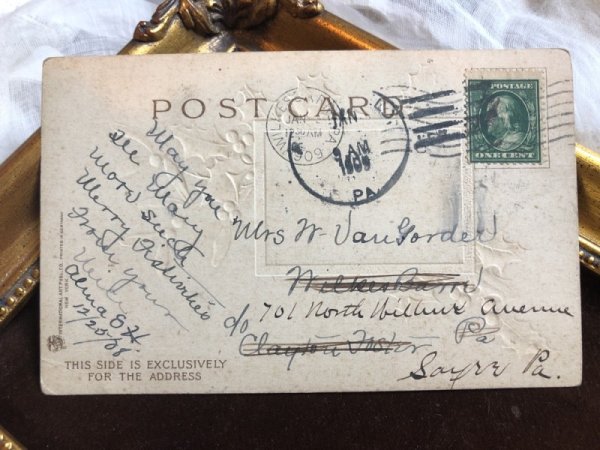 POST CARD
WILKES
JAN
PA.
JAN
AM
PA.
POSTAGE
ONE CENT
May you
see Many
More such
Merry Festivities
From your
Alma E H.
12/25/08
Mrs W. VanGorder
Wilkes Barre
701 North Wilbur Avenue
c/o
Pa
Clayton Foster
Sayre Pa.
INTERNATIONAL ART PUBL. CO. PRINTED IN GERMANY
NEW YORK
THIS SIDE IS EXCLUSIVELY
FOR THE ADDRESS